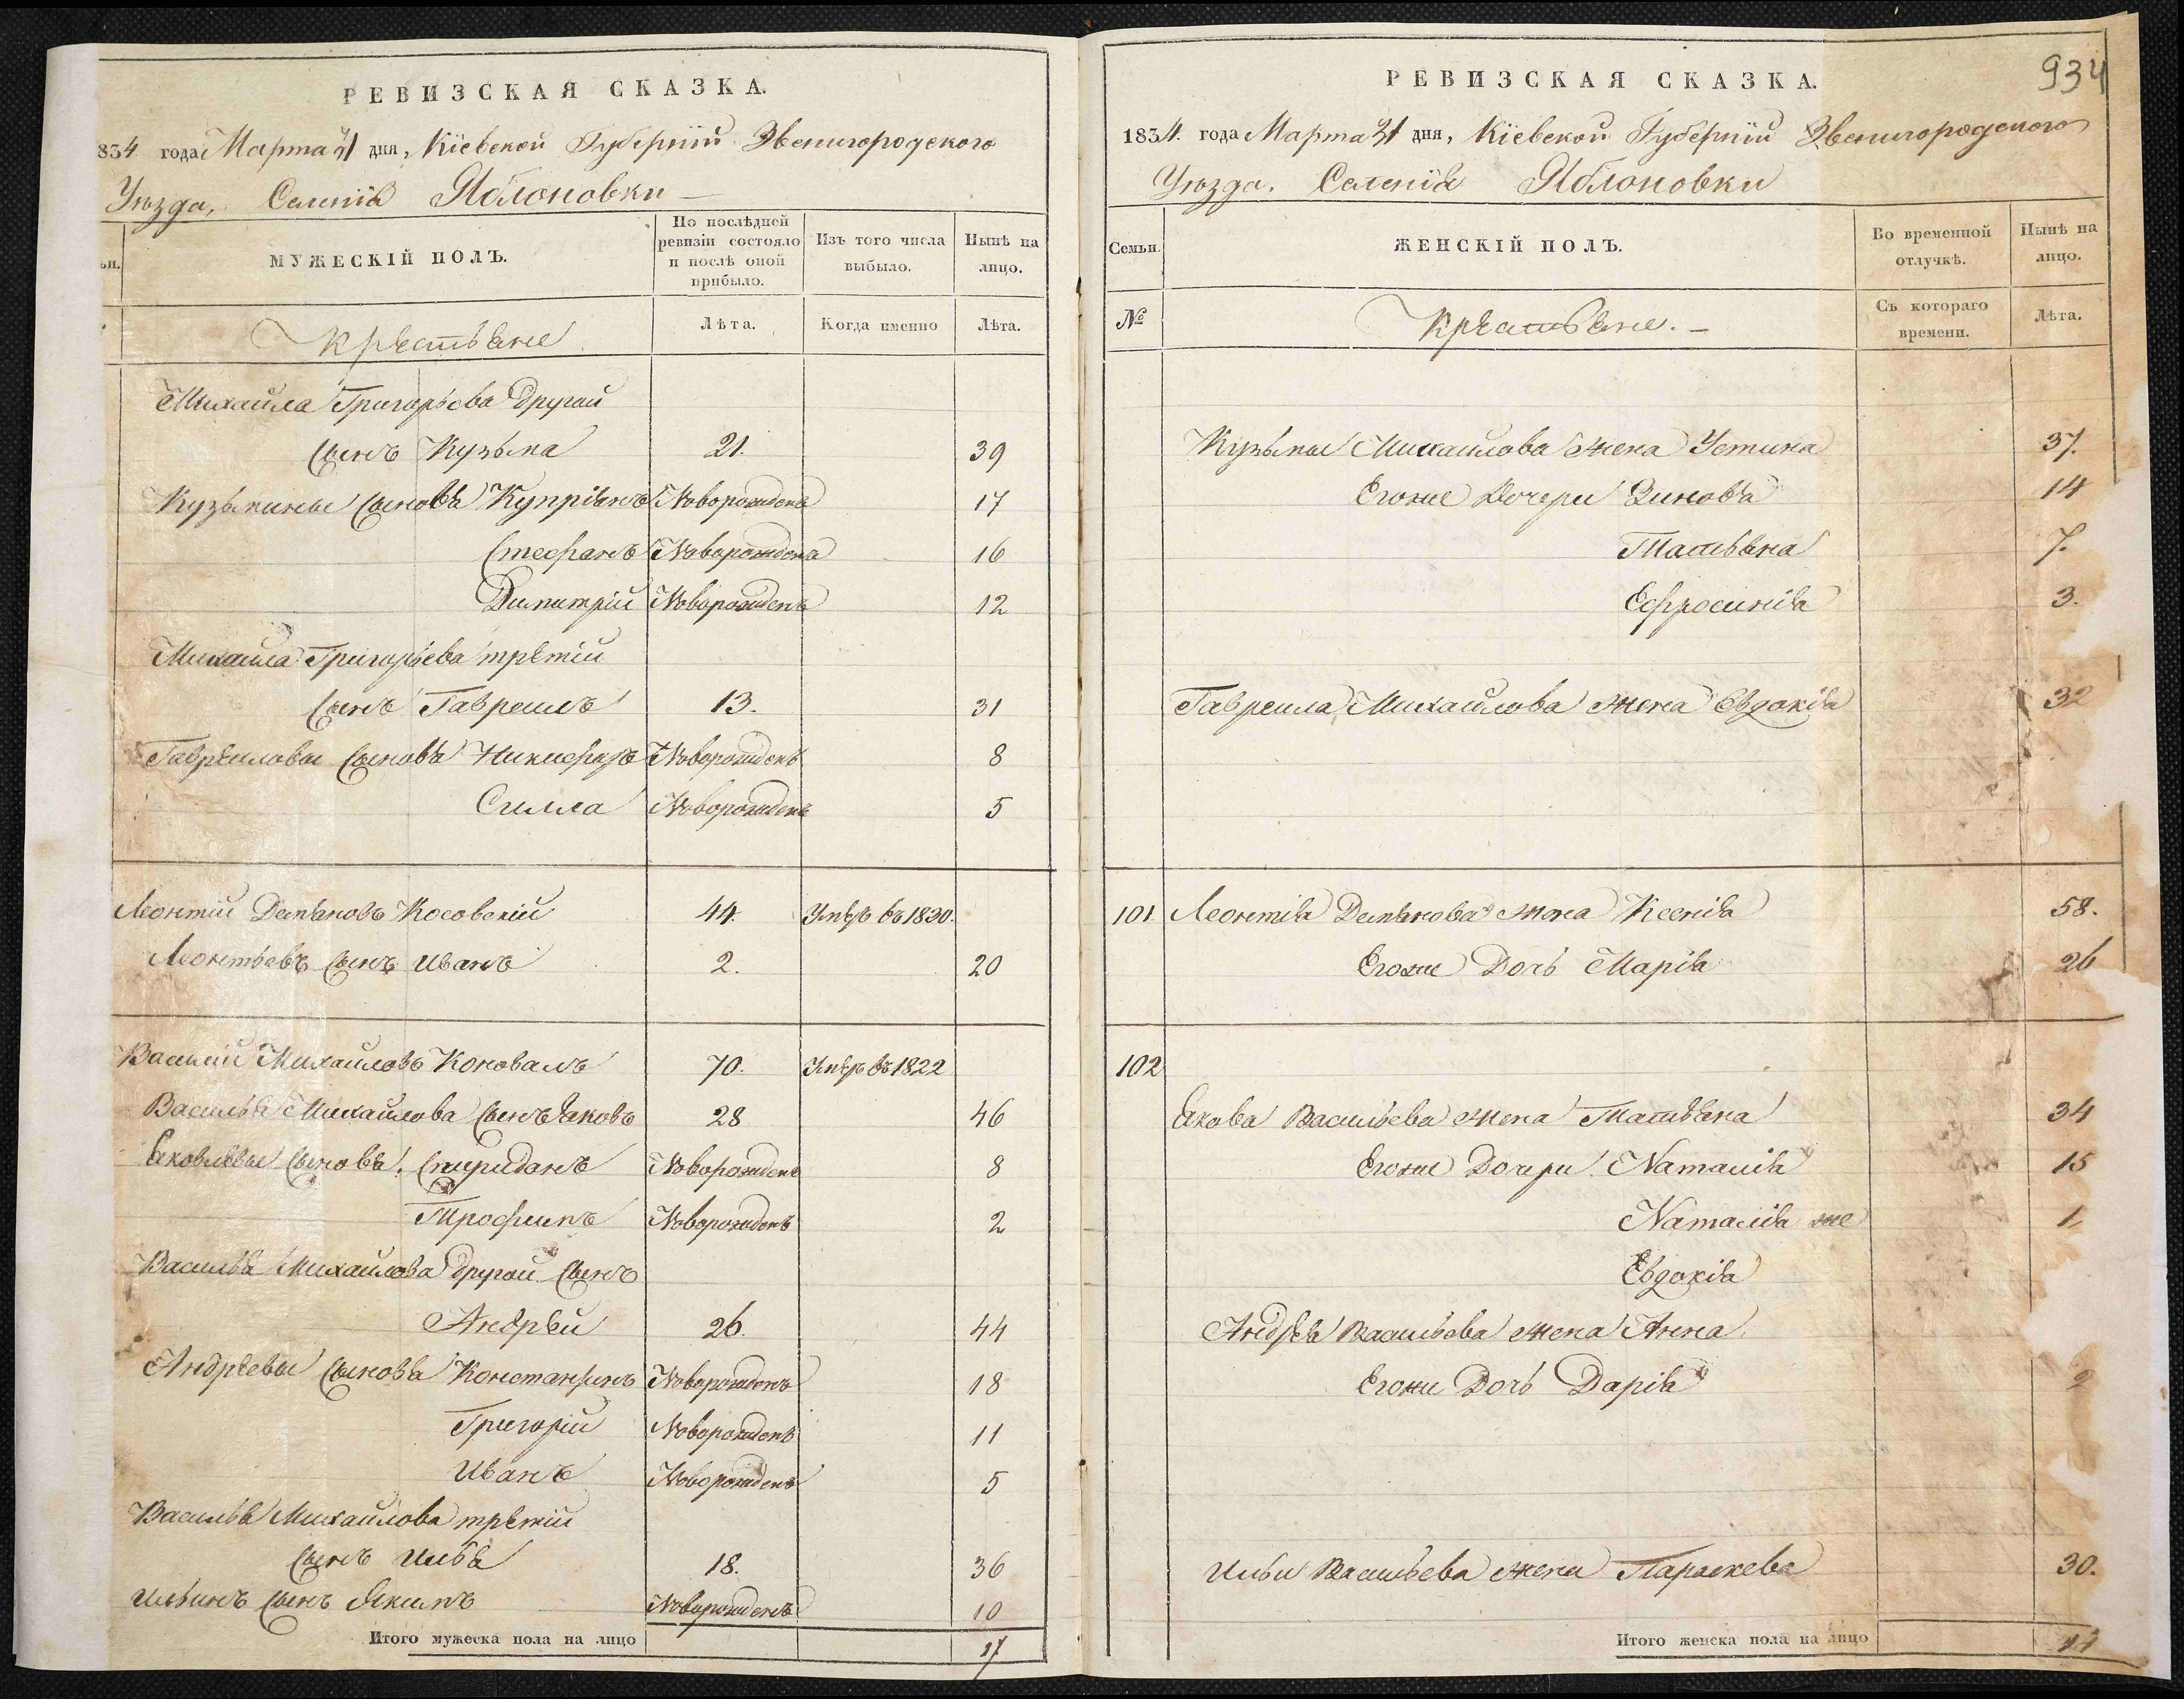 РЕВИЗСКАЯ СКАЗКА.
834 года Марта 21 дня, Кіевской Губерніи Звенигородского
Уѣзда, Селенія Яблоновки
ьи.
МУЖЕСКІЙ ПОЛЪ.
По послѣдней ревизіи состояло и послѣ оной прибыло.
Изъ того числа выбыло.
Нынѣ на лицо.
Крестьяне
Лѣта.
Когда именно
Лѣта.
Михайла Григорьева другой
сынъ Кузьма 21. 39
Кузьмины сыновья Купріянъ Новорожденъ 17
Стефанъ Новорожденъ 16
Димитрій Новорожденъ 12
Михайла Григорьева третій
сынъ Гавреилъ 13. 31
Гавреиловы сыновья Никифоръ Новорожденъ 8
Силла Новорожденъ 5
Леонтій Демьяновъ Косовскій 44. Умеръ въ 1830.
Леонтьевъ сынъ Иванъ 2. 20
Василій Михайловъ Коновалъ 70. Умеръ въ 1822
Василья Михайлова сынъ Яковъ 28 46
Яковлевы сыновья Спиридонъ Новорожденъ 8
Трофимъ Новорожденъ 2
Василья Михайлова другой сынъ
Андрей 26. 44
Андреевы сыновья Константинъ Новорожденъ 18
Григорій Новорожденъ 11
Иванъ Новорожденъ 5
Василья Михайлова третій
сынъ Илья 18. 36
Ильинъ сынъ Якимъ Новорожденъ 10
Итого мужеска пола на лицо 17
934
РЕВИЗСКАЯ СКАЗКА.
1834. года Марта 21 дня, Кіевской Губерніи Звенигородского
Уѣзда. Селенія Яблоновки
Семьи.
ЖЕНСКІЙ ПОЛЪ.
Во временной отлучкѣ.
Нынѣ на лицо.
№
Крестьяне.
Съ котораго времени.
Лѣта.
Кузьмы Михайлова жена Устина 37.
Егоже дочери Зиновья 14
Татьяна 7.
Ефросинія 3.
Гавреила Михайлова жена Евдокія 32
101. Леонтія Демьянова жена Ксенія 58.
Егоже дочь Марія 26
102
Якова Васильева жена Татьяна 34
Егоже дочери Наталія 15
Наталія же 1.
Евдокія
Андрея Васильева жена Анна
Егоже дочь Дарія 2
Ильи Васильева жена Параскева 30.
Итого женска пола на лицо